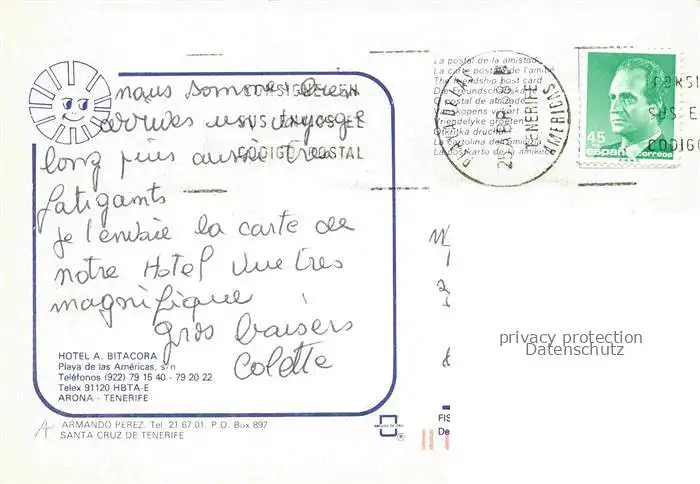 nous sommes bien
arrivés un voyage
long puis aussi très
fatigants
je l'envoie la carte de
notre Hotel vue très
magnifique
gros baisers
Colette
HOTEL A. BITACORA
Playa de las Américas, s/n
Teléfonos (922) 79 15 40 - 79 20 22
Telex 91120 HBTA-E
ARONA - TENERIFE
ARMANDO PEREZ. Tel. 21 67 01. P.O. Box 897
SANTA CRUZ DE TENERIFE
CONSIGNE EN
SUS ENVIOS EL
CODIGO POSTAL
La postal de la amistad
La carte postale de l'amitié
The friendship post card
Die Freundschafts
postal de amizade
Vriendelijke groeten
Otkritka
La cartolina dell'amicizia
La postkarto de la amikeco
PLAYA DE LAS AMERICAS
TENERIFE
25
45
españa correos
CONSI
SUS E
CODIGO
FIS
De
privacy protection
Datenschutz